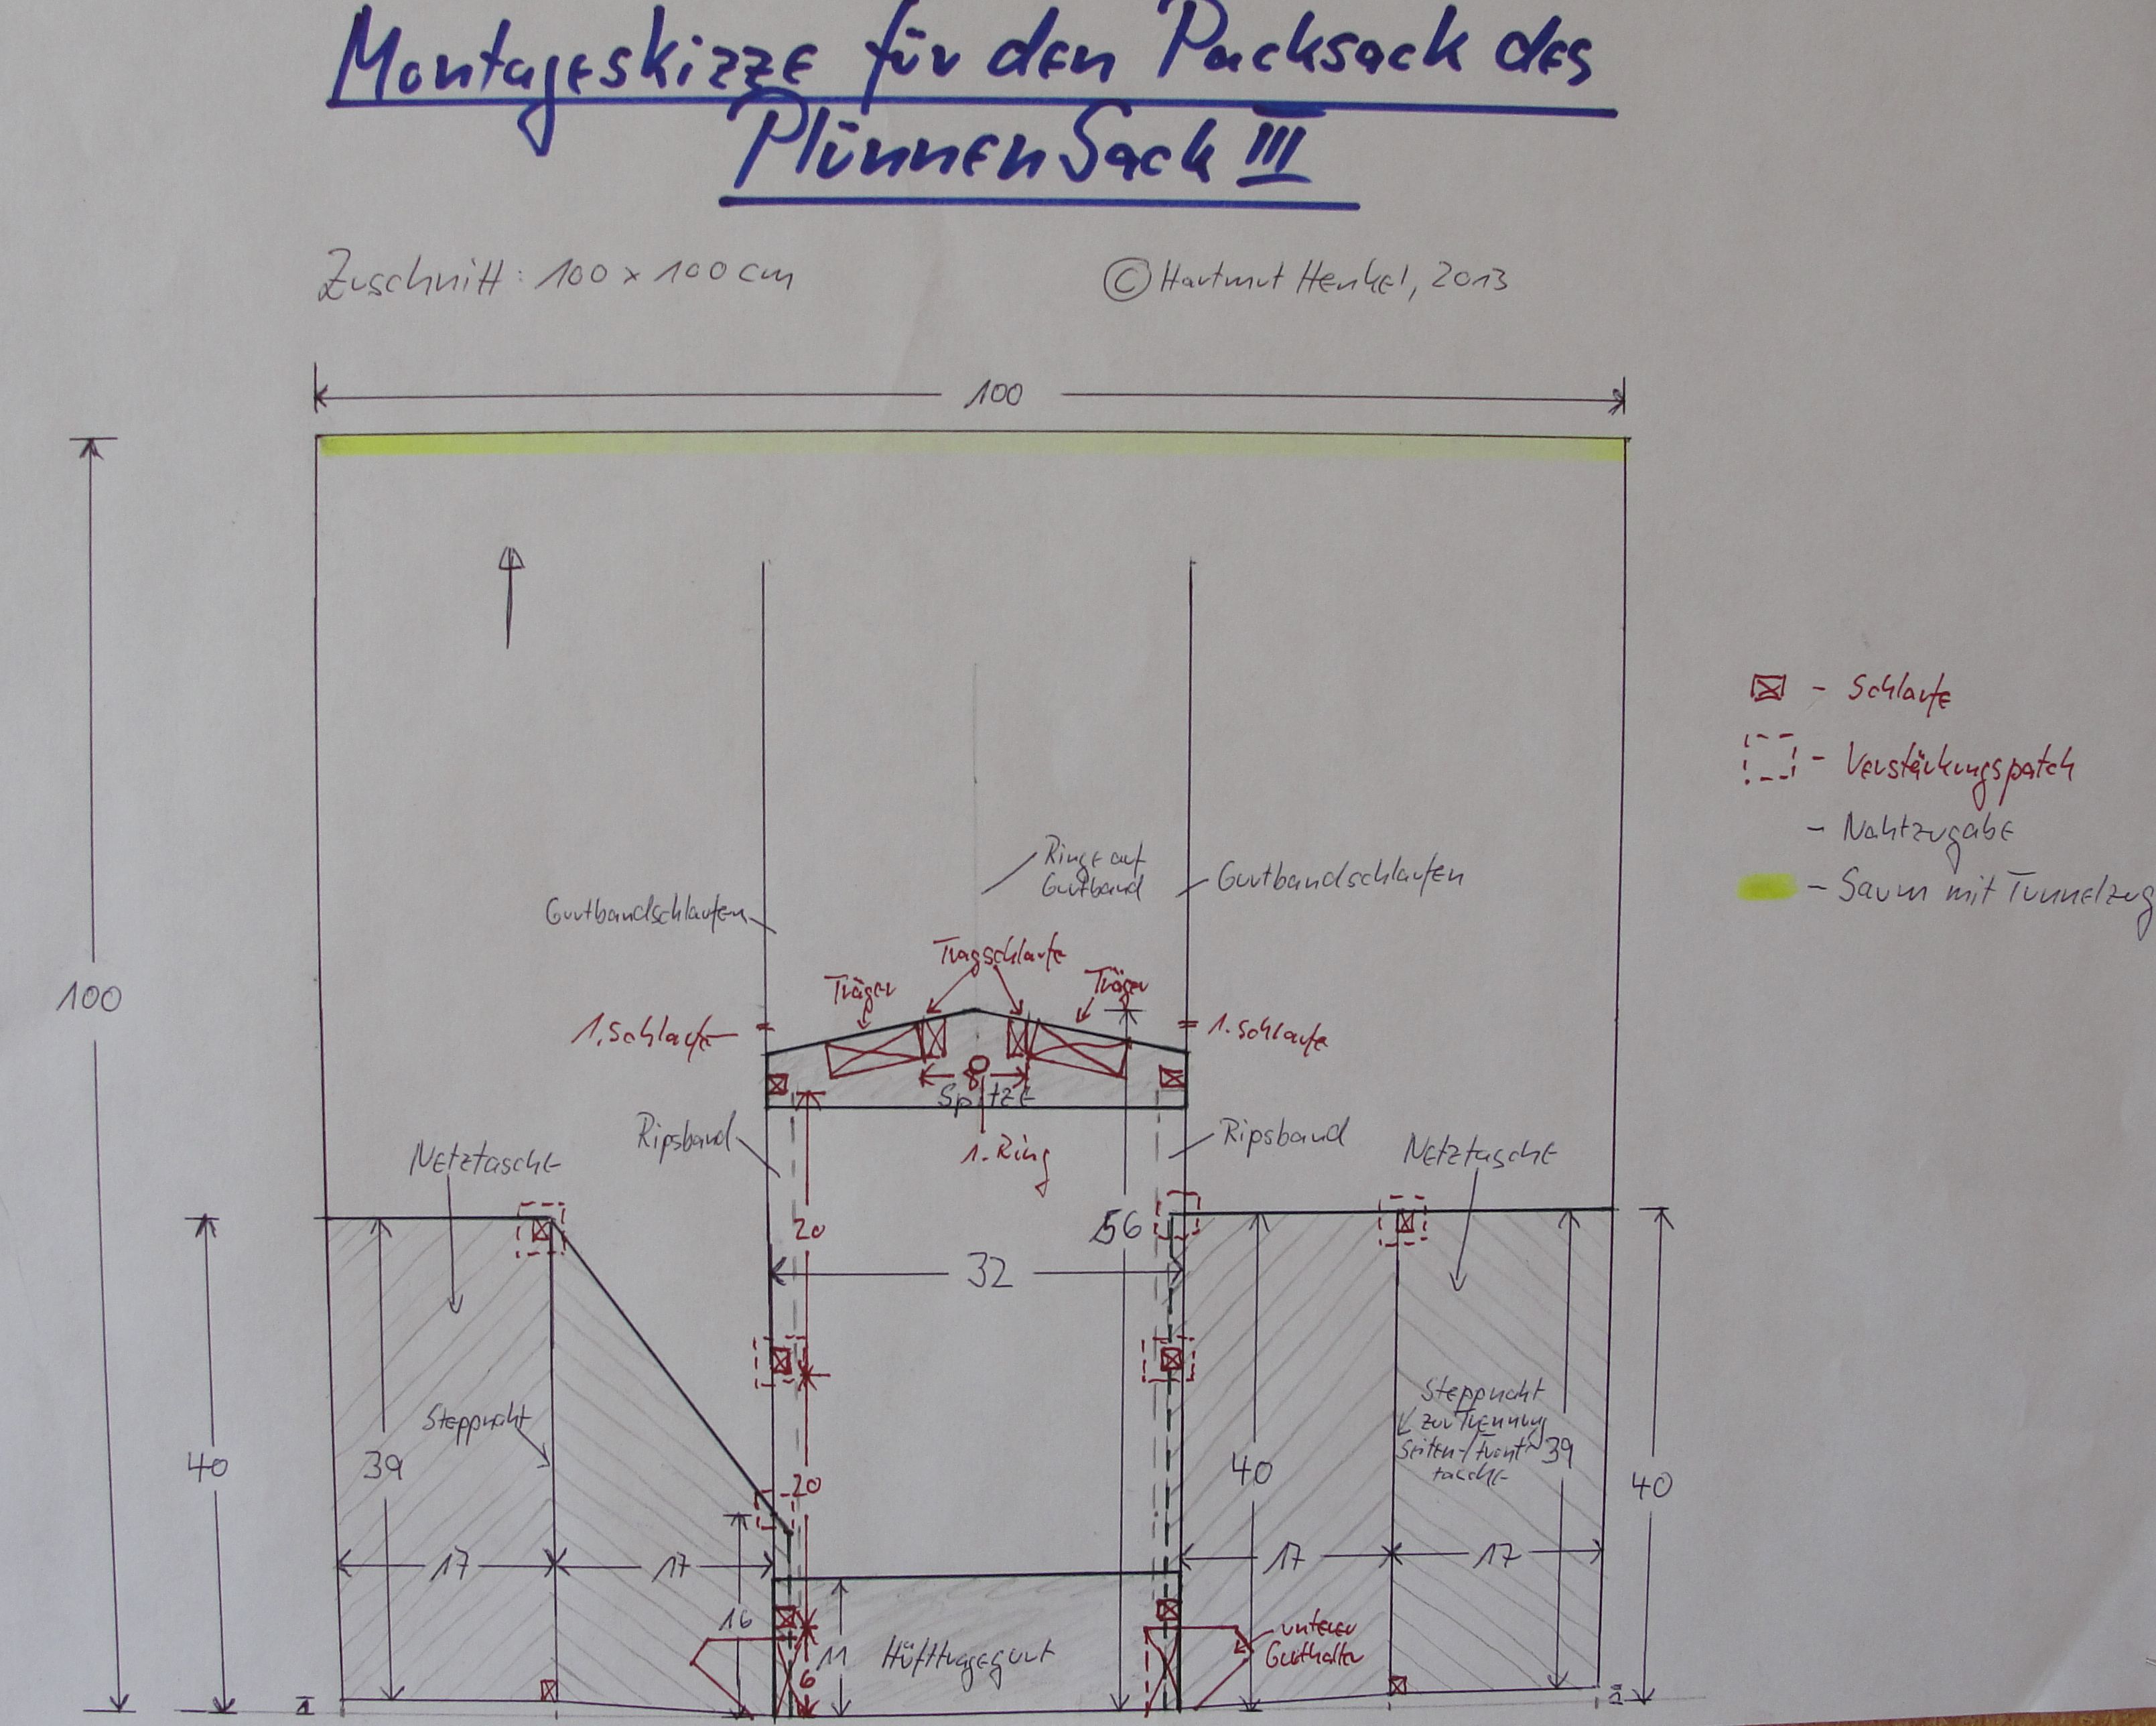 Montageskizze für den Packsack des
PlünnenSack III
Zuschnitt: 100 x 100 cm
© Hartmut Henkel, 2013
100
100
- Schlaufe
- Verstärkungspatch
- Nahtzugabe
- Saum mit Tunnelzug
Ringe auf
Gurtband
Gurtbandschlaufen
Gurtbandschlaufen
Tragschlaufe
Träger
Träger
1. Schlaufe
1. Schlaufe
8
Spitze
1. Ring
Ripsband
Ripsband
Netztasche
Netztasche
20
56
32
Steppnaht
Steppnaht
zur Trennung
Seiten-/Front-
tasche
40
39
20
40
39
40
17
17
17
17
16
11
6
Hüfttragegurt
unterer
Gurthalter
1
1